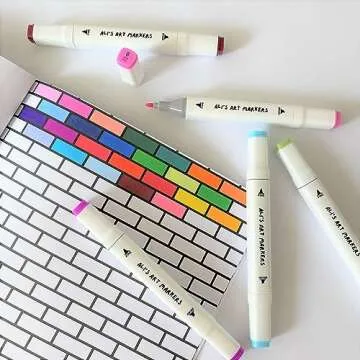 ALI'S ART MARKERS
ALI'S ART MARKERS
ALI'S ART MARKERS
ALI'S ART MARKERS
ALI'S ART MARKERS